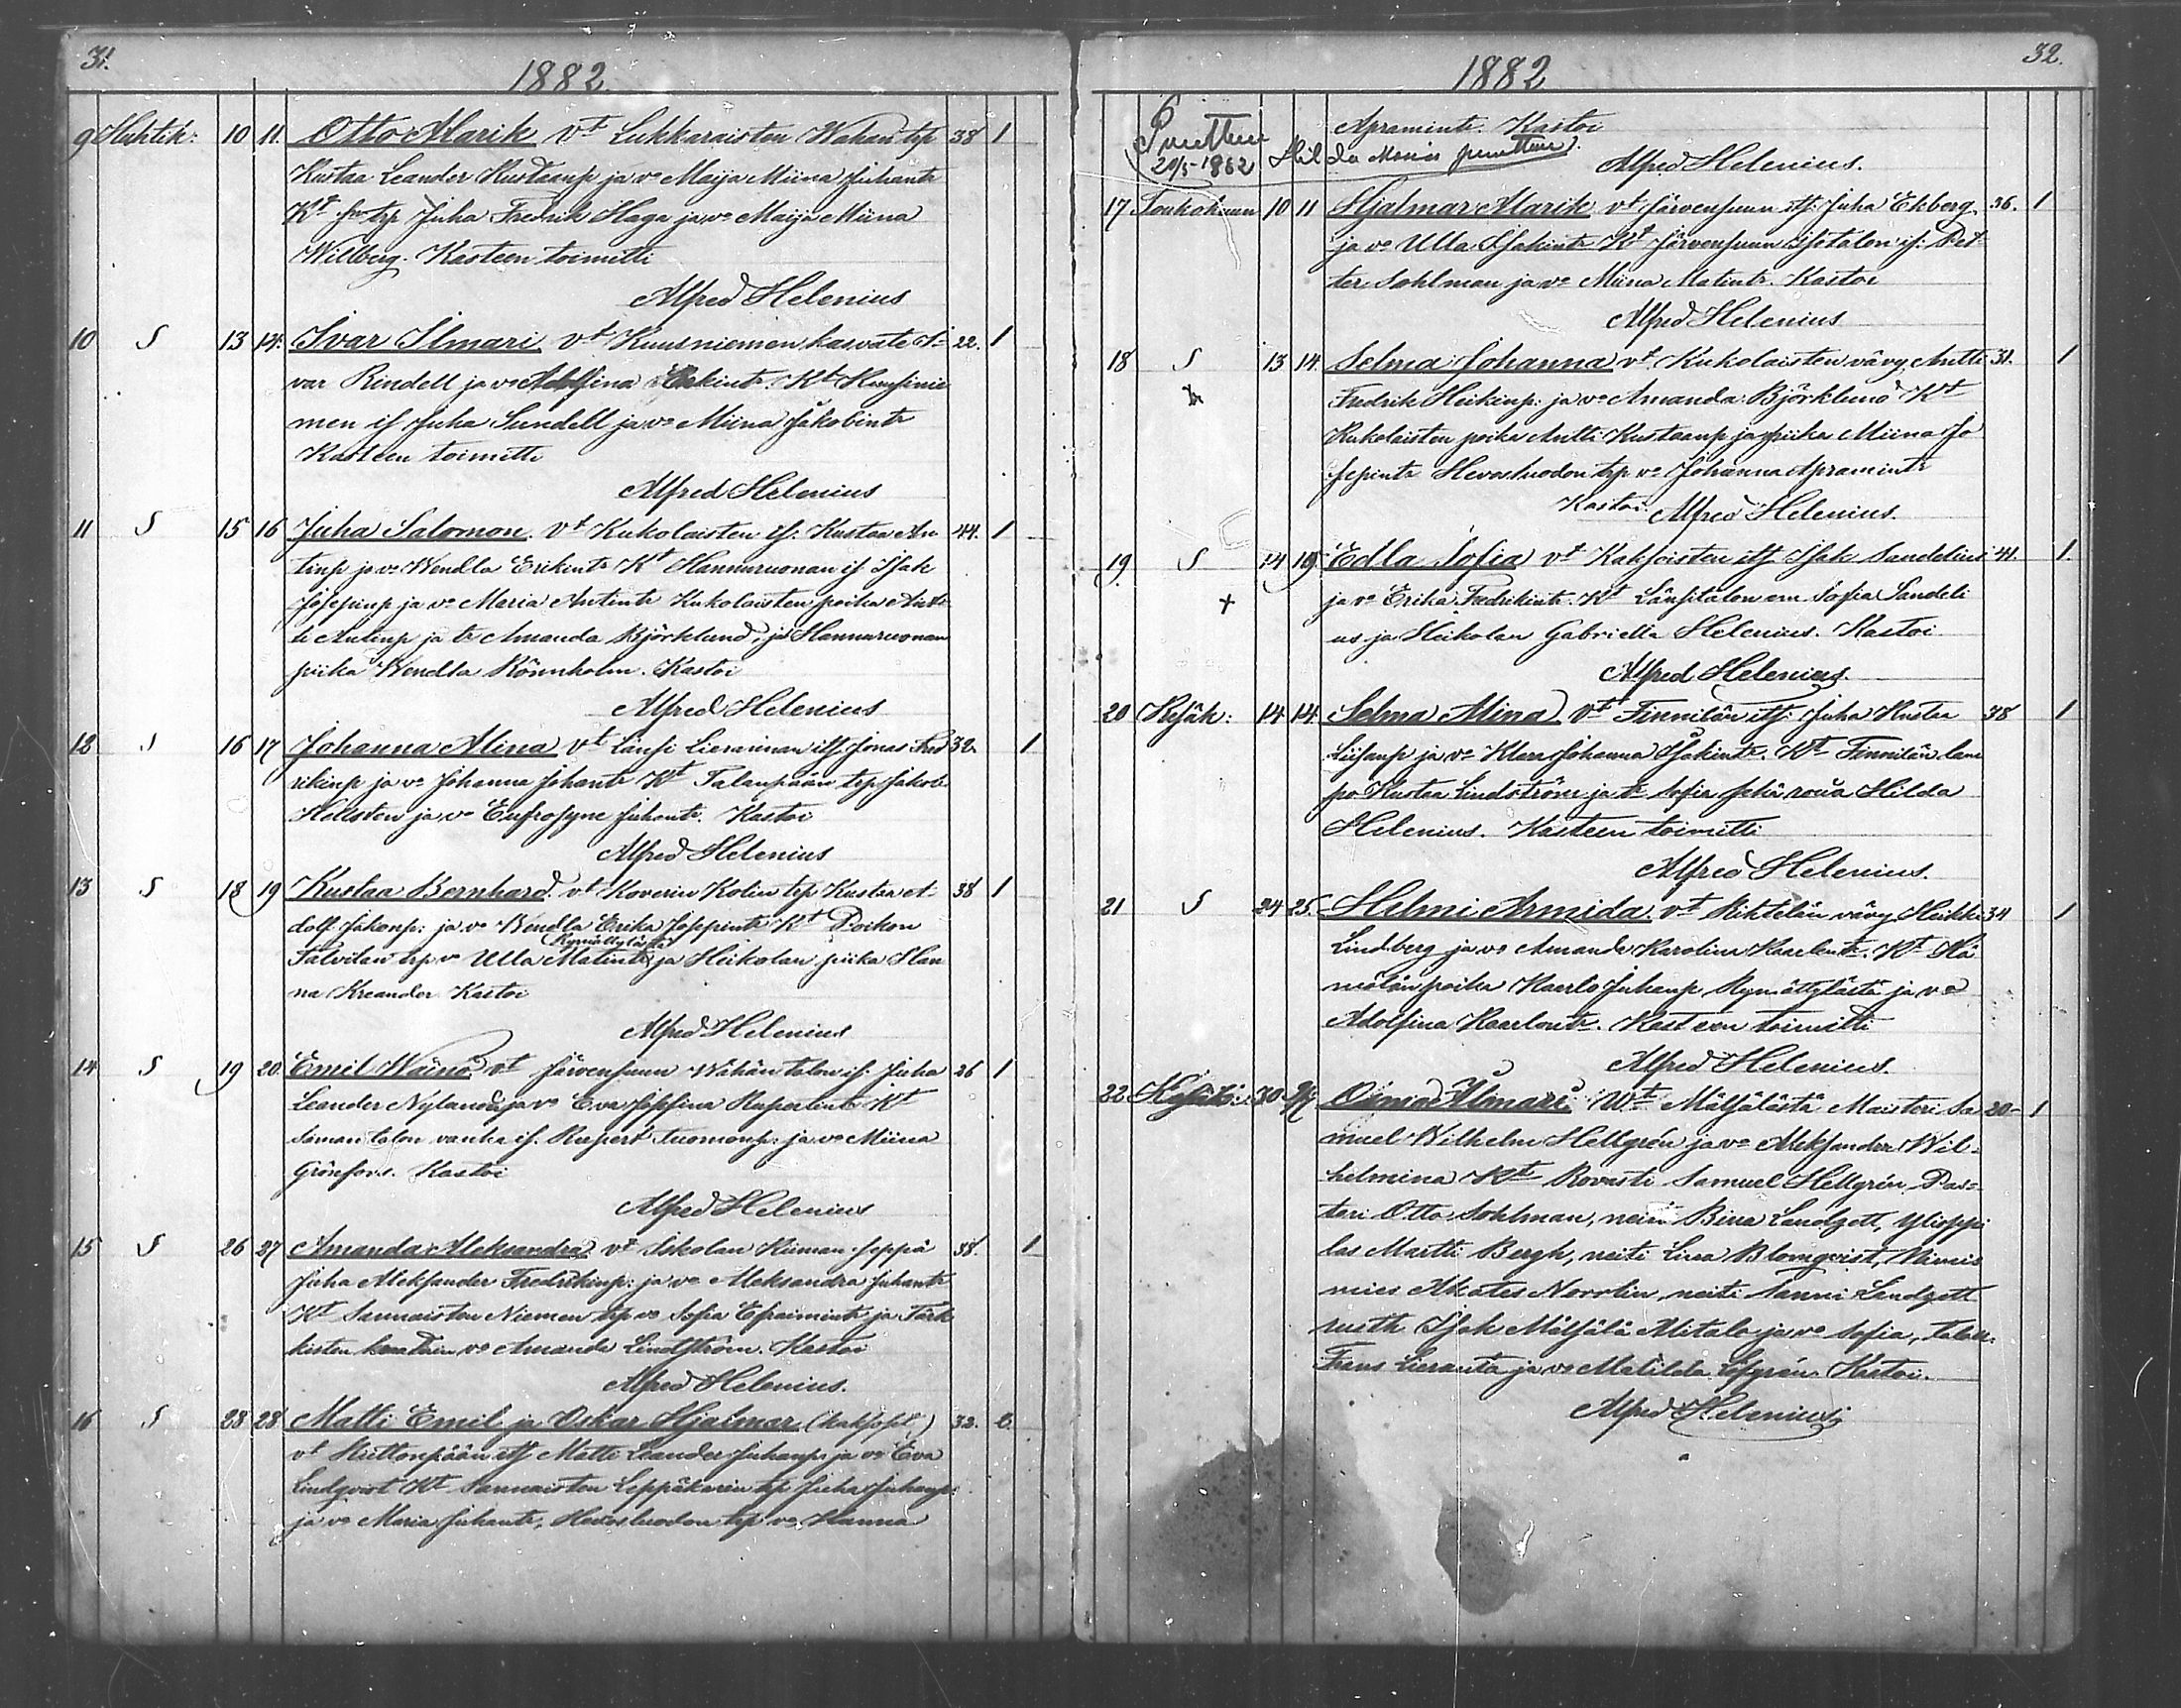 31.
1882
9 Huhtik: 10 11. Otto Alarik vt Lukkaraisten Wahan trp 38 1
Kustaa Leander Kustaanp ja vo Maija Miina Juhantr
Kt trp Juha Fredrik Haga ja vo Maija Miina
Willberg. Kasteen toimitti
Alfred Helenius
10 S 13 14. Ivar Ilmari vt Kuusniemen kasvate I- 22. 1
var Rindell ja vo Adolfina Erkintr. Kt Kuusnie
men if Juha Sundell ja vo Miina Jakobintr
Kasteen toimitti
Alfred Helenius
11 S 15 16 Juha Salomon. vt Kukolaisten if: Kustaa An 44. 1
tinp ja vo Wendla Erikintr Kt Hannaruonan if Isak
Josepinp ja vo Maria Antintr Kukolaisten poika Ant
ti Antinp ja tr Amanda Björklund, ja Hannaruonan
piika Wendla Rönnholm. Kastoi
Alfred Helenius
12 S 16 17 Johanna Alina vt Länsi Lieminan itf Jonas Fred 32. 1
rikinp ja vo Johanna Johantr Kt Talanpään trp Jakob
Hellsten ja vo Eufrosyne Juhantr. Kastoi
Alfred Helenius
13 S 18 19 Kustaa Bernhard. vt Koverin Kolin trp Kustaa A- 38 1
dolf Jakonp: ja vo Wendla Erika Joppintr Kt Poikon
Rymättylästä
Talvilan trp vo Ulla Matintr ja Heikolan piika Han
na Kreander Kastoi
Alfred Helenius
14 S 19 20. Emil Wäinö vt Järvensuun Wähän talon if: Juha 26 1
Leander Nylander ja vo Eva Josefina Rupertintr Kt
Saman talon vanha if. Rupert Tuomonp: ja vo Miina
Grönfors. Kastoi
Alfred Helenius
15 S 26 27 Amanda Aleksandra vt Iskolan Kiiman seppä 38. 1
Juha Aleksander Fredrikinp: ja vo Aleksandra Juhantr
Kt Sannaisten Niemen trp vo Sofia Efraimintr ja Tark
kisten vo Amanda Lindström. Kastoi
Alfred Helenius.
16 S 28 28 Matti Emil ja Oskar Hjalmar (kaksoset) 32. 2.
vt Riittonpään itf Matti Leander Juhanp: ja vo Eva
Lindqvist Kt Sannaisten Leppäkarin trp Juha Juhanp:
ja vo Maria Juhantr, Hevosluodon trp vo Hanna
32.
1882
Apramintr. Kastoi
Puuttuu
20/5 1882 Hilda Maria puuttuu.
Alfred Helenius.
17 Toukokuun 10 11 Hjalmar Alarik vt Järvensuun itf: Juha Ekberg. 36. 1
ja vo Ulla Isakintr Kt Järvensuun Isotalon if: Pet-
ter Sohlman ja vo Miina Matintr. Kastoi
Alfred Helenius
18 S 13 14. Selma Johanna vt Kukolaisten vävy Antti 31. 1
Fredrik Heikinp: ja vo Amanda Björklund Kt
Kukolaisten poika Antti Kustaanp ja piika Miina Jo
sepintr Hevosluodon trp vo Johanna Apramintr
Kastoi. Alfred Helenius.
19 S 14 19. Edla Sofia vt Kaksoisten itf Isak Sandelius 41. 1.
ja vo Erika Fredrikintr. Kt Länsitalon em Sofia Sandeli
us ja Heikolan Gabriella Helenius. Kastoi
Alfred Helenius.
20 Kesäk: 14 14. Selma Alina vt Finnilän itf: Juha Kustaa 38 1
Liisanp ja vo Klara Johanna Isakintr. Kt Finnilän lam
po Kustaa Lindström ja tr Sofia sekä rouva Hilda
Helenius. Kasteen toimitti
Alfred Helenius.
21 S 24 25. Helmi Armida. vt Rihtelän vävy Heikki 34 1
Lindberg ja vo Amanda Karolina Kaarlentr. Kt Hä
mölän poika Kaarlo Juhanp Rymättylästä ja vo
Adolfina Kaarlontr. Kasteen toimitti
Alfred Helenius.
22 Kesäk: 30 Oiva Ilmari Wt Mältjälästä Maisteri Sa 20- 1
muel Wilhelm Hellgrén ja vo Aleksandra Wil-
helmina Kt Rovasti Samuel Hellgrén, Pas-
tori Otto Sohlman, neiti Bina Landzett, Ylioppi
las Martti Bergh, neiti Liina Blomqvist, Nimis
mies Akates Norrlin, neiti Sanni Landzett
rusth Isak Mältjälä Alitalo ja vo Sofia, talon.
Frans Lieranta ja vo Matilda Löfgrén. Kastoi.
Alfred Helenius